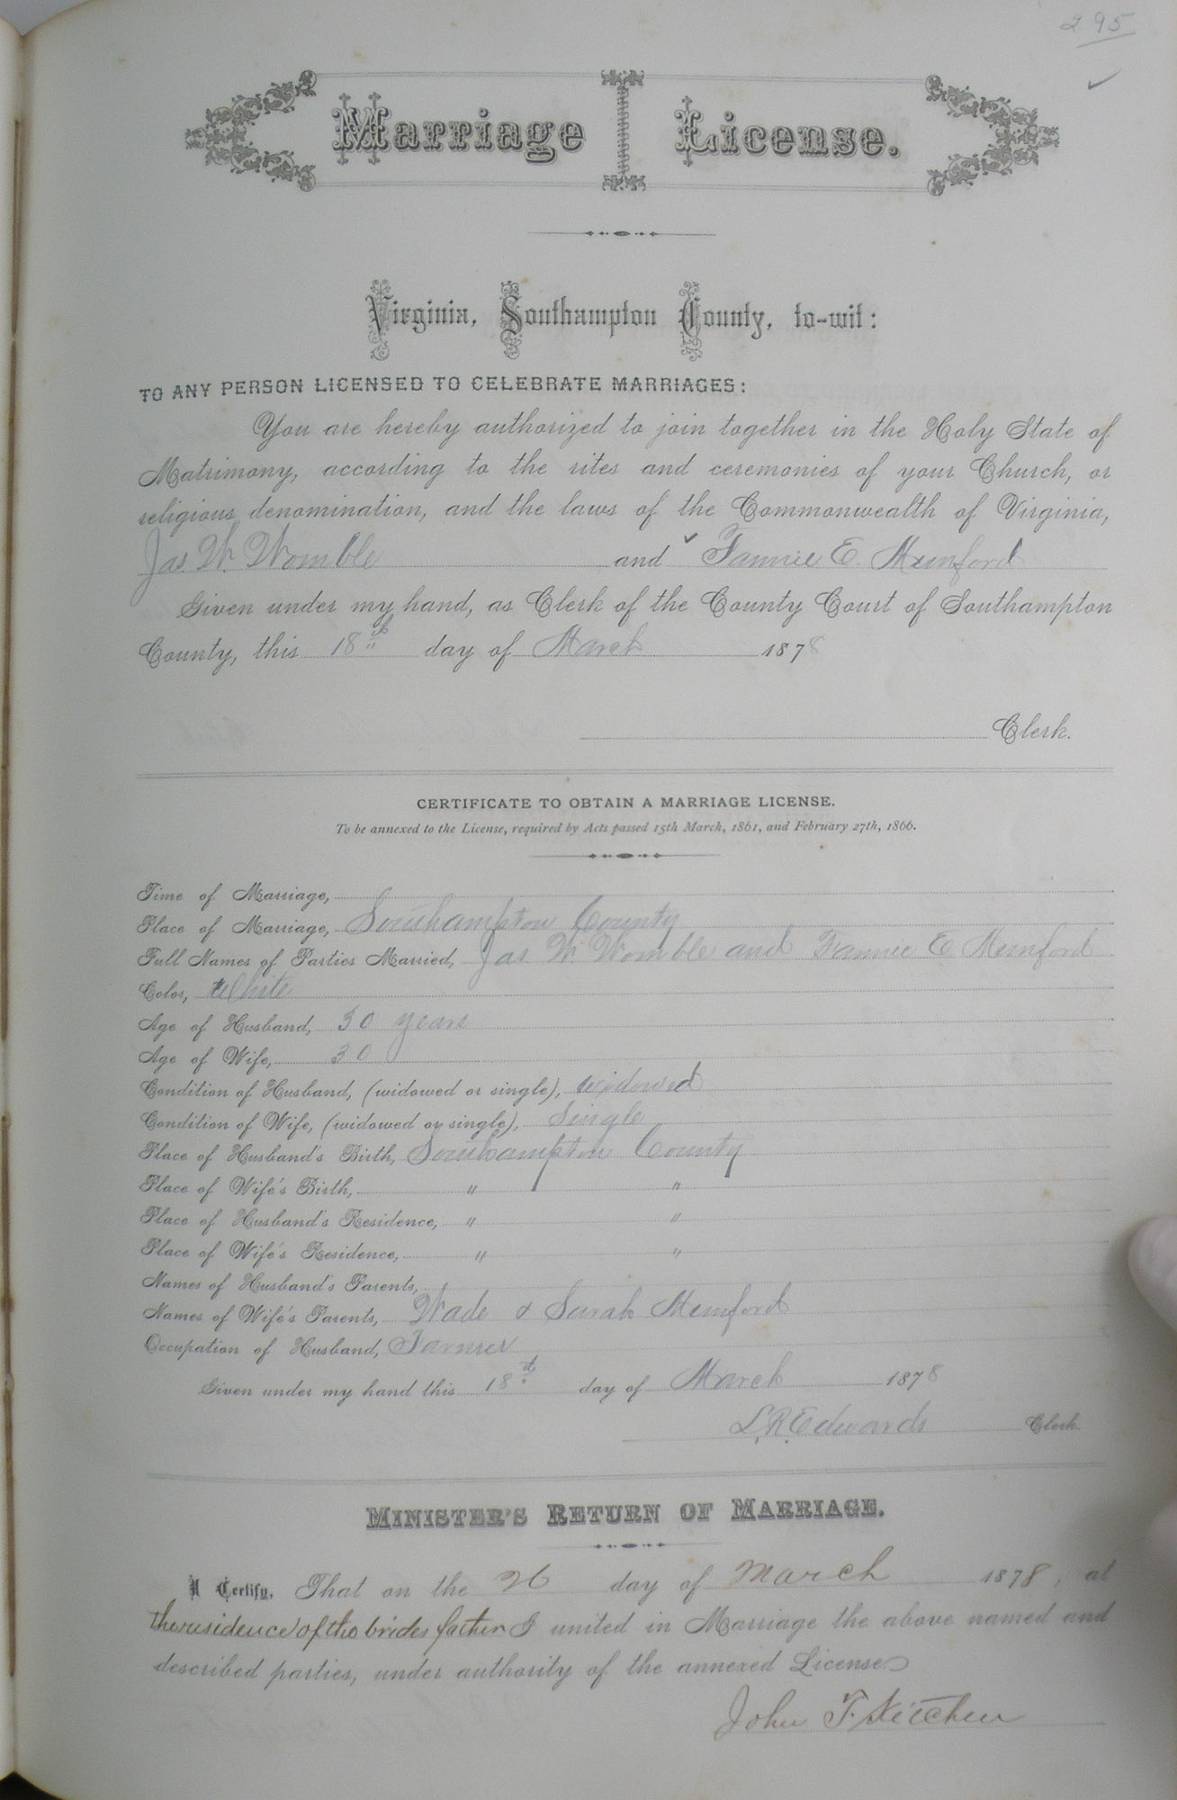 295
Marriage License.
Virginia, Southampton County, to-wit:
TO ANY PERSON LICENSED TO CELEBRATE MARRIAGES:
You are hereby authorized to join together in the Holy State of
Matrimony, according to the rites and ceremonies of your Church, or
religious denomination, and the laws of the Commonwealth of Virginia,
Jas. W. Womble and Fannie E. Mumford
Given under my hand, as Clerk of the County Court of Southampton
County, this 18th day of March 1878
Clerk.
CERTIFICATE TO OBTAIN A MARRIAGE LICENSE.
To be annexed to the License, required by Acts passed 15th March, 1861, and February 27th, 1866.
Time of Marriage,
Place of Marriage, Southampton County
Full Names of Parties Married, Jas W. Womble and Fannie E Mumford
Color, White
Age of Husband, 50 years
Age of Wife, 30
Condition of Husband, (widowed or single), widowed
Condition of Wife, (widowed or single), Single
Place of Husband's Birth, Southampton County
Place of Wife's Birth, " "
Place of Husband's Residence, " "
Place of Wife's Residence, " "
Names of Husband's Parents,
Names of Wife's Parents, Wade & Sarah Mumford
Occupation of Husband, Farmer
Given under my hand this 18th day of March 1878
L. R. Edwards Clerk.
MINISTER'S RETURN OF MARRIAGE.
I Certify, That on the 26 day of March 1878, at
the residence of the brides father I united in Marriage the above named and
described parties, under authority of the annexed License.
John F. Kitchen